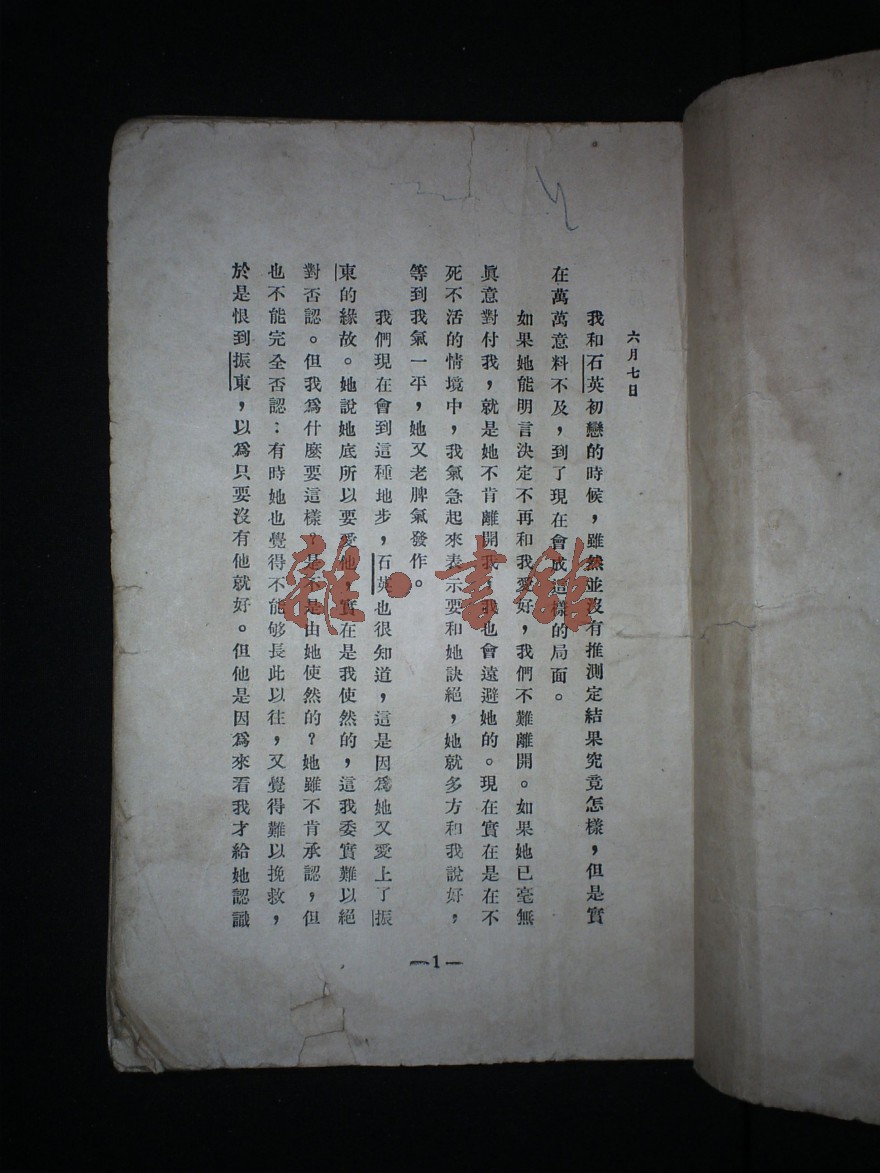 六月七日
我和石英初戀的時候，雖然並沒有推測定結果究竟怎樣，但是實
在萬萬意料不及，到了現在會成這樣的局面。
如果她能明言決定不再和我愛好，我們不難離開。如果她已毫無
眞意對付我，就是她不肯離開我，我也會遠避她的。現在實在是在不
死不活的情境中，我氣急起來表示要和她訣絕，她就多方和我說好，
等到我氣一平，她又老脾氣發作。
我們現在會到這種地步，石英也很知道，這是因爲她又愛上了振
東的緣故。她說她底所以要愛他，實在是我使然的，這我委實難以絕
對否認。但我爲什麼要這樣？是不是由她使然的？她雖不肯承認，但
也不能完全否認：有時她也覺得不能够長此以往，又覺得難以挽救，
於是恨到振東，以爲只要沒有他就好。但他是因爲來看我才給她認識
—1—
雜·書館